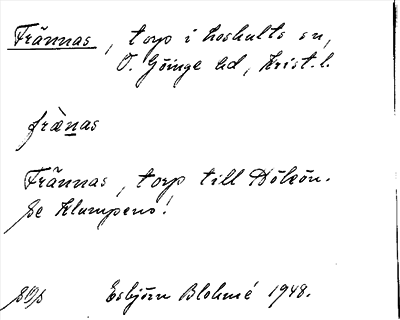 Frännas, torp i Loshults sn,
Ö. Göinge hd, Krist. l.
frænas
Frännas, torp till Dölsön.
Se Klumpens!
Esbjörn Blohmé 1948.